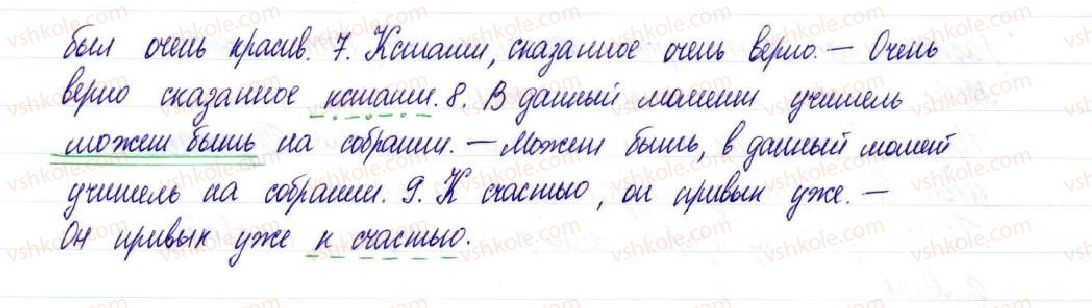 был очень красив. 7. Кстати, сказанное очень верно. — Очень
верно сказанное кстати. 8. В данный момент учитель
может быть на собрании. — Может быть, в данный момент
учитель на собрании. 9. К счастью, он привык уже. —
Он привык уже к счастью.